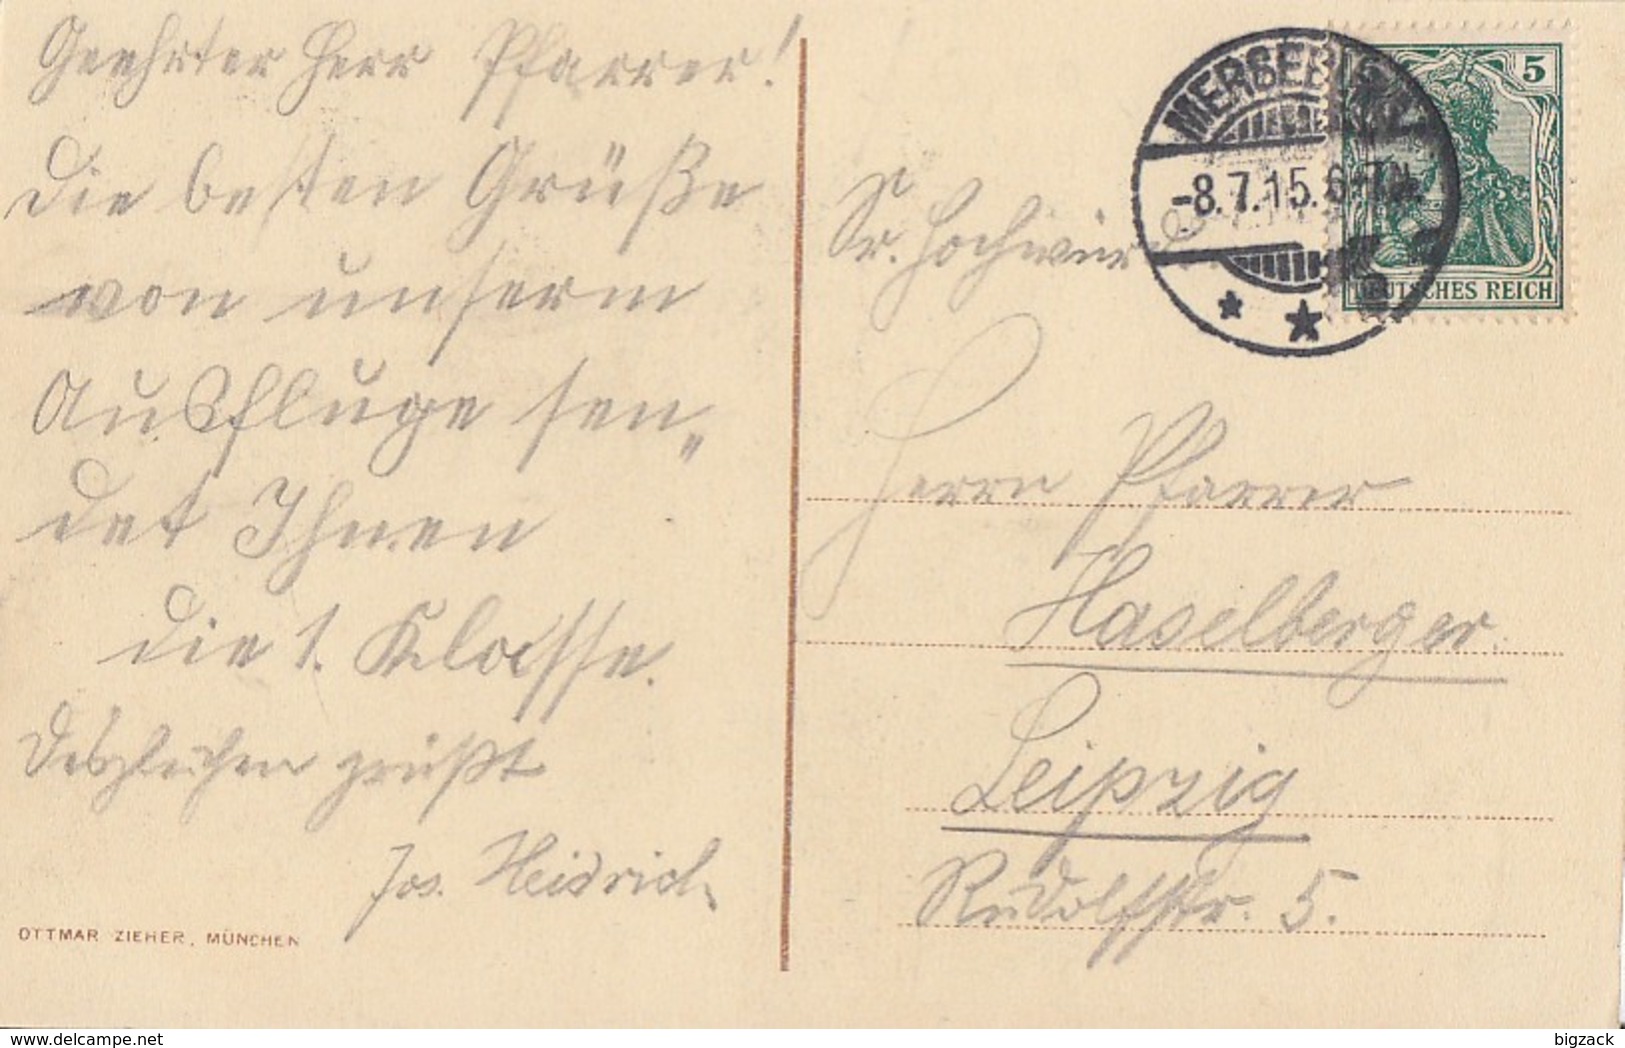 Geehrter Herr Pfarrer!
Die besten Grüße
von unserm
Ausfluge sen„
det Ihnen
die 1. Klasse.
Desgleichen grüßt
Jos. Heidrich
OTTMAR ZIEHER, MÜNCHEN
MERSEBURG
-8.7.15. 6-7N.
5
DEUTSCHES REICH
Sr. Hochwürd
Herrn Pfarrer
Haselberger.
Leipzig
Rudolfstr. 5.
delcampe.net
bigzack